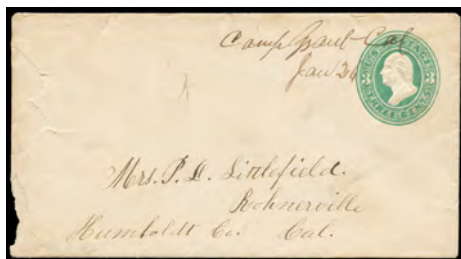 Camp Grant Cal
Jan 26
U.S. POSTAGE
THREE CENTS
Mrs. P. D. Littlefield.
Rohnerville
Humboldt Co. Cal.